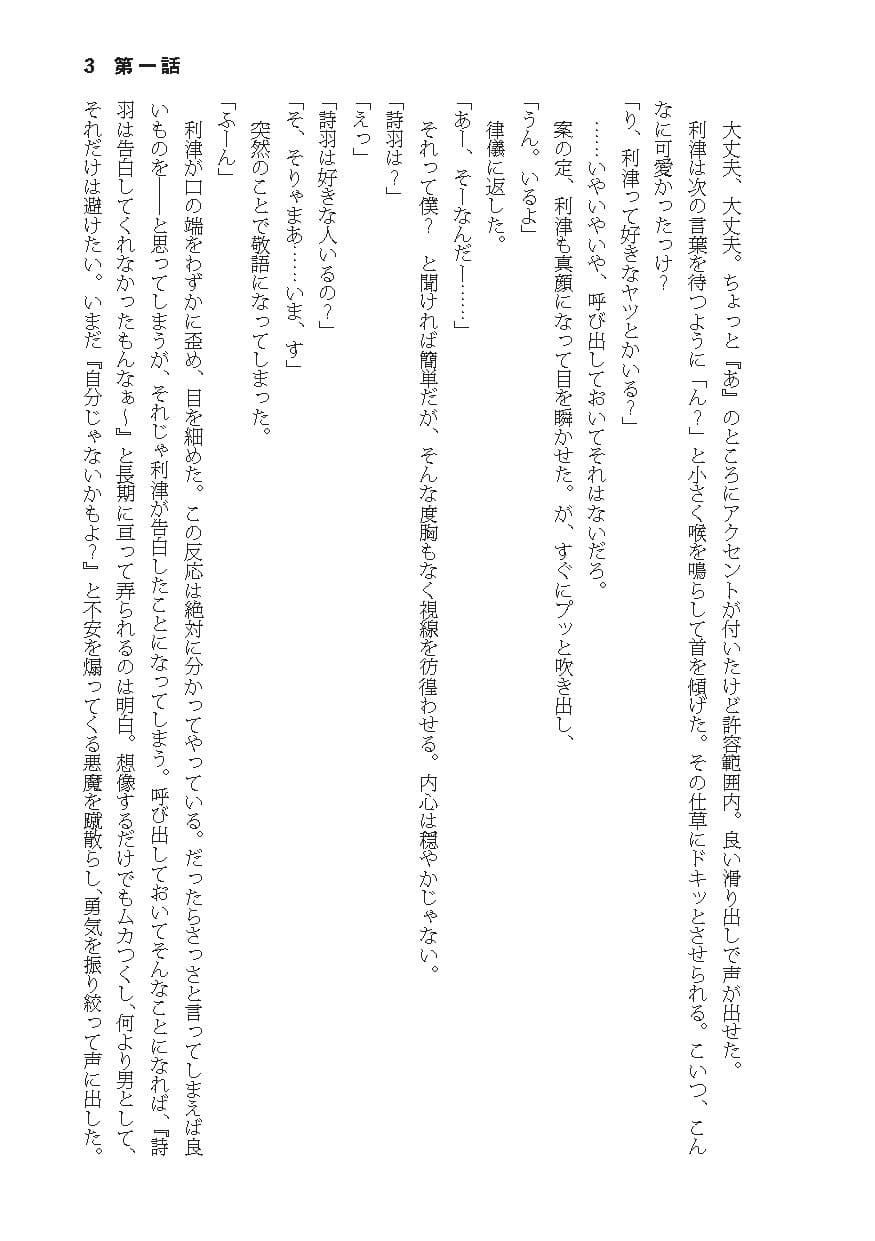 3 第一話
大丈夫、大丈夫。ちょっと『あ』のところにアクセントが付いたけど許容範囲内。良い滑り出しで声が出せた。
利津は次の言葉を待つように「ん？」と小さく喉を鳴らして首を傾げた。その仕草にドキッとさせられる。こいつ、こん
なに可愛かったっけ？
「り、利津って好きなヤツとかいる？」
……いやいやいや、呼び出しておいてそれはないだろ。
案の定、利津も真顔になって目を瞬かせた。が、すぐにプッと吹き出し、
「うん。いるよ」
律儀に返した。
「あー、そーなんだー……」
それって僕？　と聞ければ簡単だが、そんな度胸もなく視線を彷徨わせる。内心は穏やかじゃない。
「詩羽は？」
「えっ」
「詩羽は好きな人いるの？」
「そ、そりゃまあ……いま、す」
突然のことで敬語になってしまった。
「ふーん」
利津が口の端をわずかに歪め、目を細めた。この反応は絶対に分かってやっている。だったらさっさと言ってしまえば良
いものを――と思ってしまうが、それじゃ利津が告白したことになってしまう。呼び出しておいてそんなことになれば、『詩
羽は告白してくれなかったもんなぁ～』と長期に亘って弄られるのは明白。想像するだけでもムカつくし、何より男として、
それだけは避けたい。いまだ『自分じゃないかもよ？』と不安を煽ってくる悪魔を蹴散らし、勇気を振り絞って声に出した。